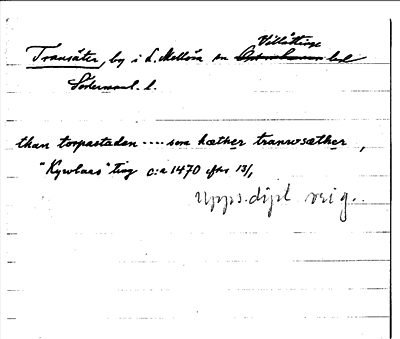 Villåttinge
Transäter, by i L. Mellösa sn hd
Södermanl. l.
than torpastaden .... som hæther tranwsæther,
"Kywlaas" ting c:a 1470 efter 13/1
Upps. dipl. orig.